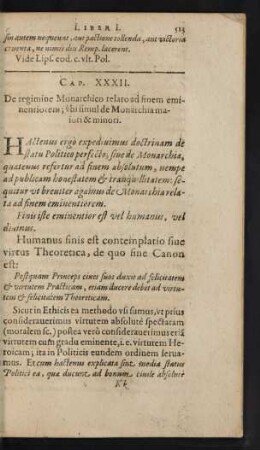 LIBER I. 513
sin autem nequeunt, aut pactione tollenda, aut victoria
cruenta, ne nimis diu Remp. lacerent.
Vide Lips. eod. c. vlt. Pol.
CAP. XXXII.
De regimine Monarchico relato ad finem emi-
nentiorem; vbi simul de Monarchia ma-
iori & minori.
HActenus ergo expediuimus doctrinam de
statu Politico perfecto, siue de Monarchia,
quatenus refertur ad finem absolutum, nempe
ad publicam honestatem & tranquillitatem: se-
quitur vt breuiter agamus de Monarchia rela-
ta ad finem eminentiorem.
Finis iste eminentior est vel humanus, vel
diuinus.
Humanus finis est contemplatio siue
virtus Theoretica, de quo sine Canon
est:
Postquam Princeps ciues suos duxit ad felicitatem
& virtutem Practicam, etiam ducere debet ad virtu-
tem & felicitatem Theoreticam.
Sicut in Ethicis ea methodo vsi sumus, vt prius
considerauerimus virtutem absolutè spectatam
(moralem sc.) postea verò considerauerimus eā
virtutem cum gradu eminente, i. e. virtutem He-
roicam; ita in Politicis eundem ordinem serua-
mus. Et cum hactenus explicata sint media status
Politici ea, quæ ducunt ad bonum ciuile absolutè
Kk